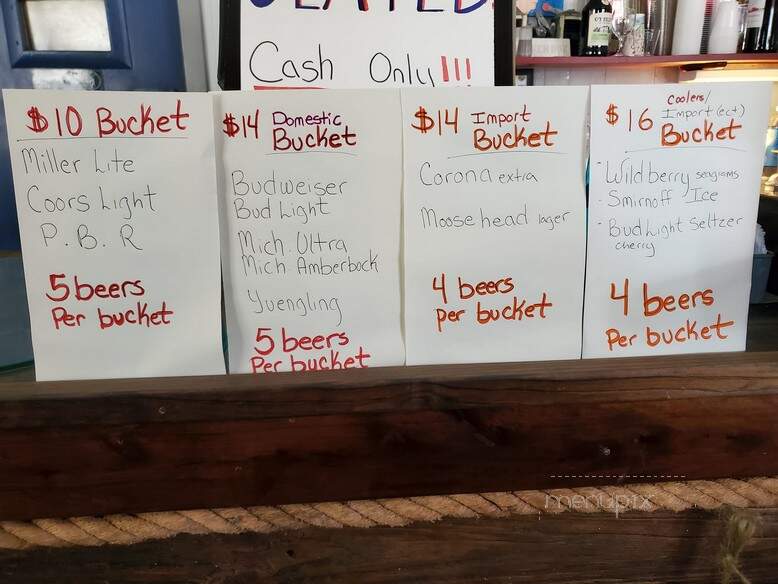 Cash Only!!!
$10 Bucket
Miller Lite
Coors Light
P.B.R
5 beers
Per bucket
$14 Domestic
Bucket
Budweiser
Bud Light
Mich. Ultra
Mich Amberbock
Yuengling
5 beers
Per bucket
$14 Import
Bucket
Corona extra
Moosehead lager
4 beers
per bucket
Coolers/
$16 Import (ect)
Bucket
- Wildberry seagrams
- Smirnoff Ice
- Bud Light Seltzer
cherry
4 beers
Per bucket
menupix